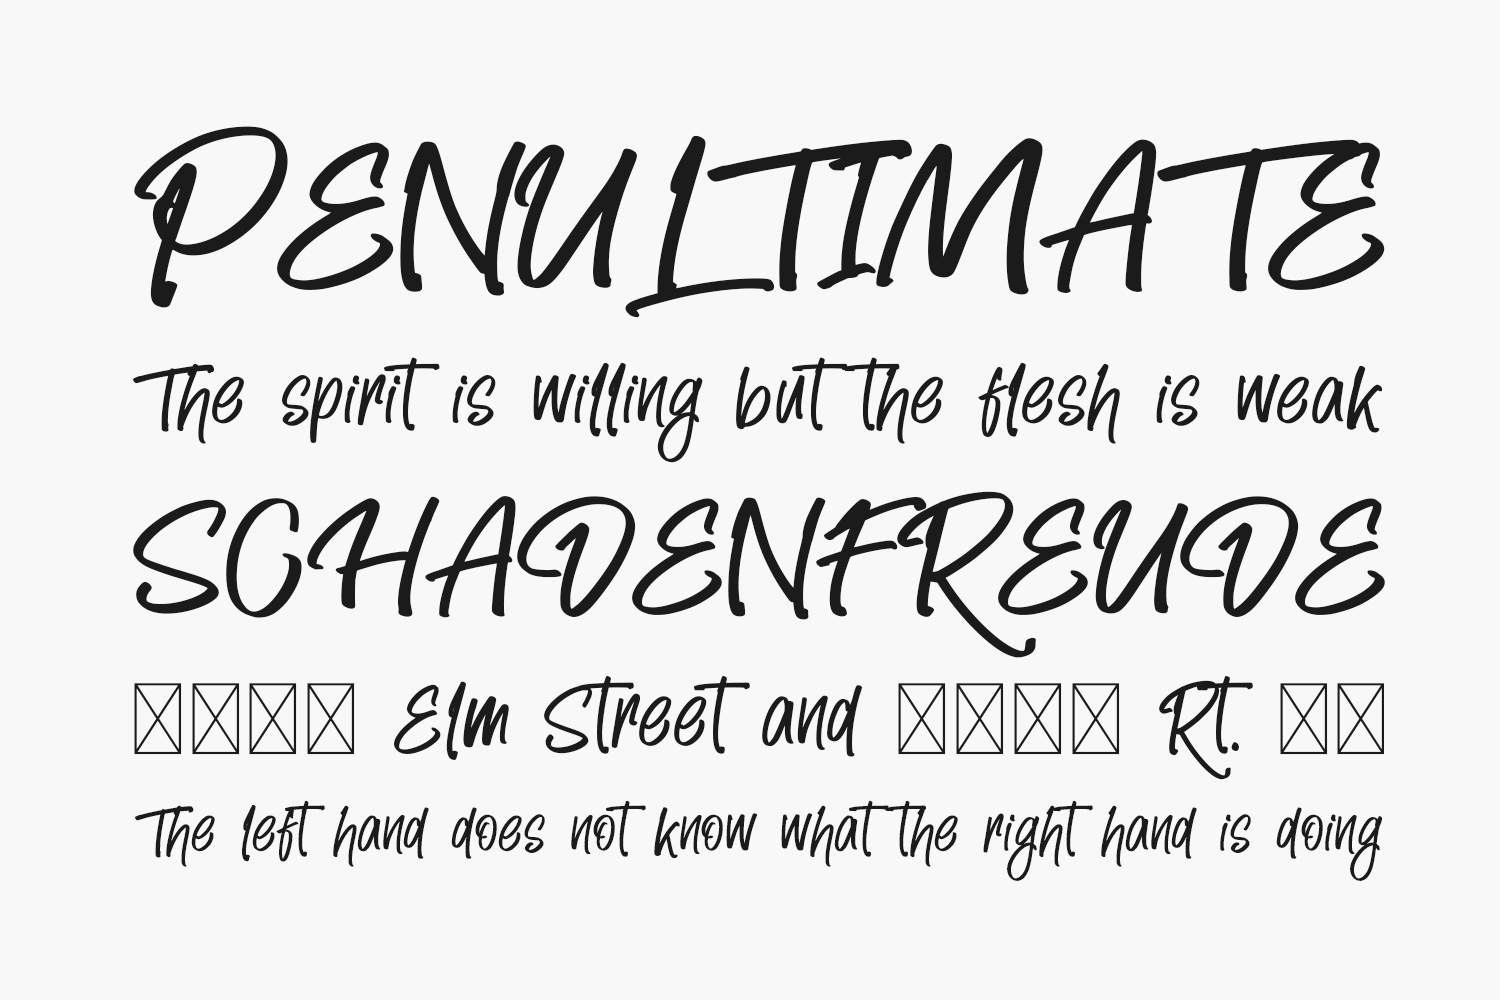 PENULTIMATE
The spirit is willing but the flesh is weak
SCHADENFREUDE
Elm Street and Rt.
The left hand does not know what the right hand is doing